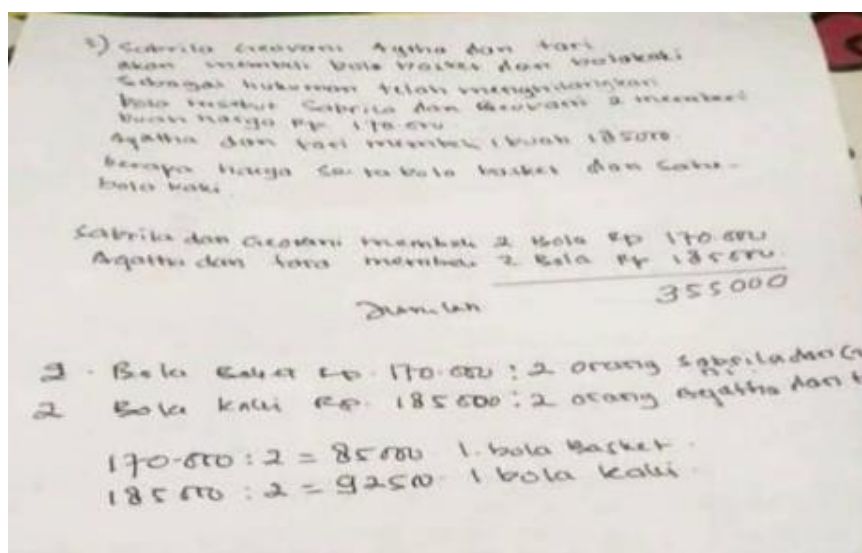 3) Sabrila Geovani Agtha dan tari
akan membeli bola basket dan bolakaki
Sebagai hukuman telah menghilangkan
bola tersebut Sabrila dan Geovani 2 membeli
buah harga Rp 170.000
Agatha dan tari membeli 1 buah 185000.
berapa harga satu bola basket dan satu
bola kaki
Sabrila dan Geovani membeli 2 Bola Rp 170.000
Agatha dan tara membeli 2 Bola Rp 185000
355000
Jumlah
2. Bola Basket Rp. 170.000 : 2 orang Sabrila dan
2 Bola Kaki Rp. 185000 : 2 orang Agatha dan t
170.000 : 2 = 85000 1. bola Basket.
185000 : 2 = 92500. 1 bola kaki.